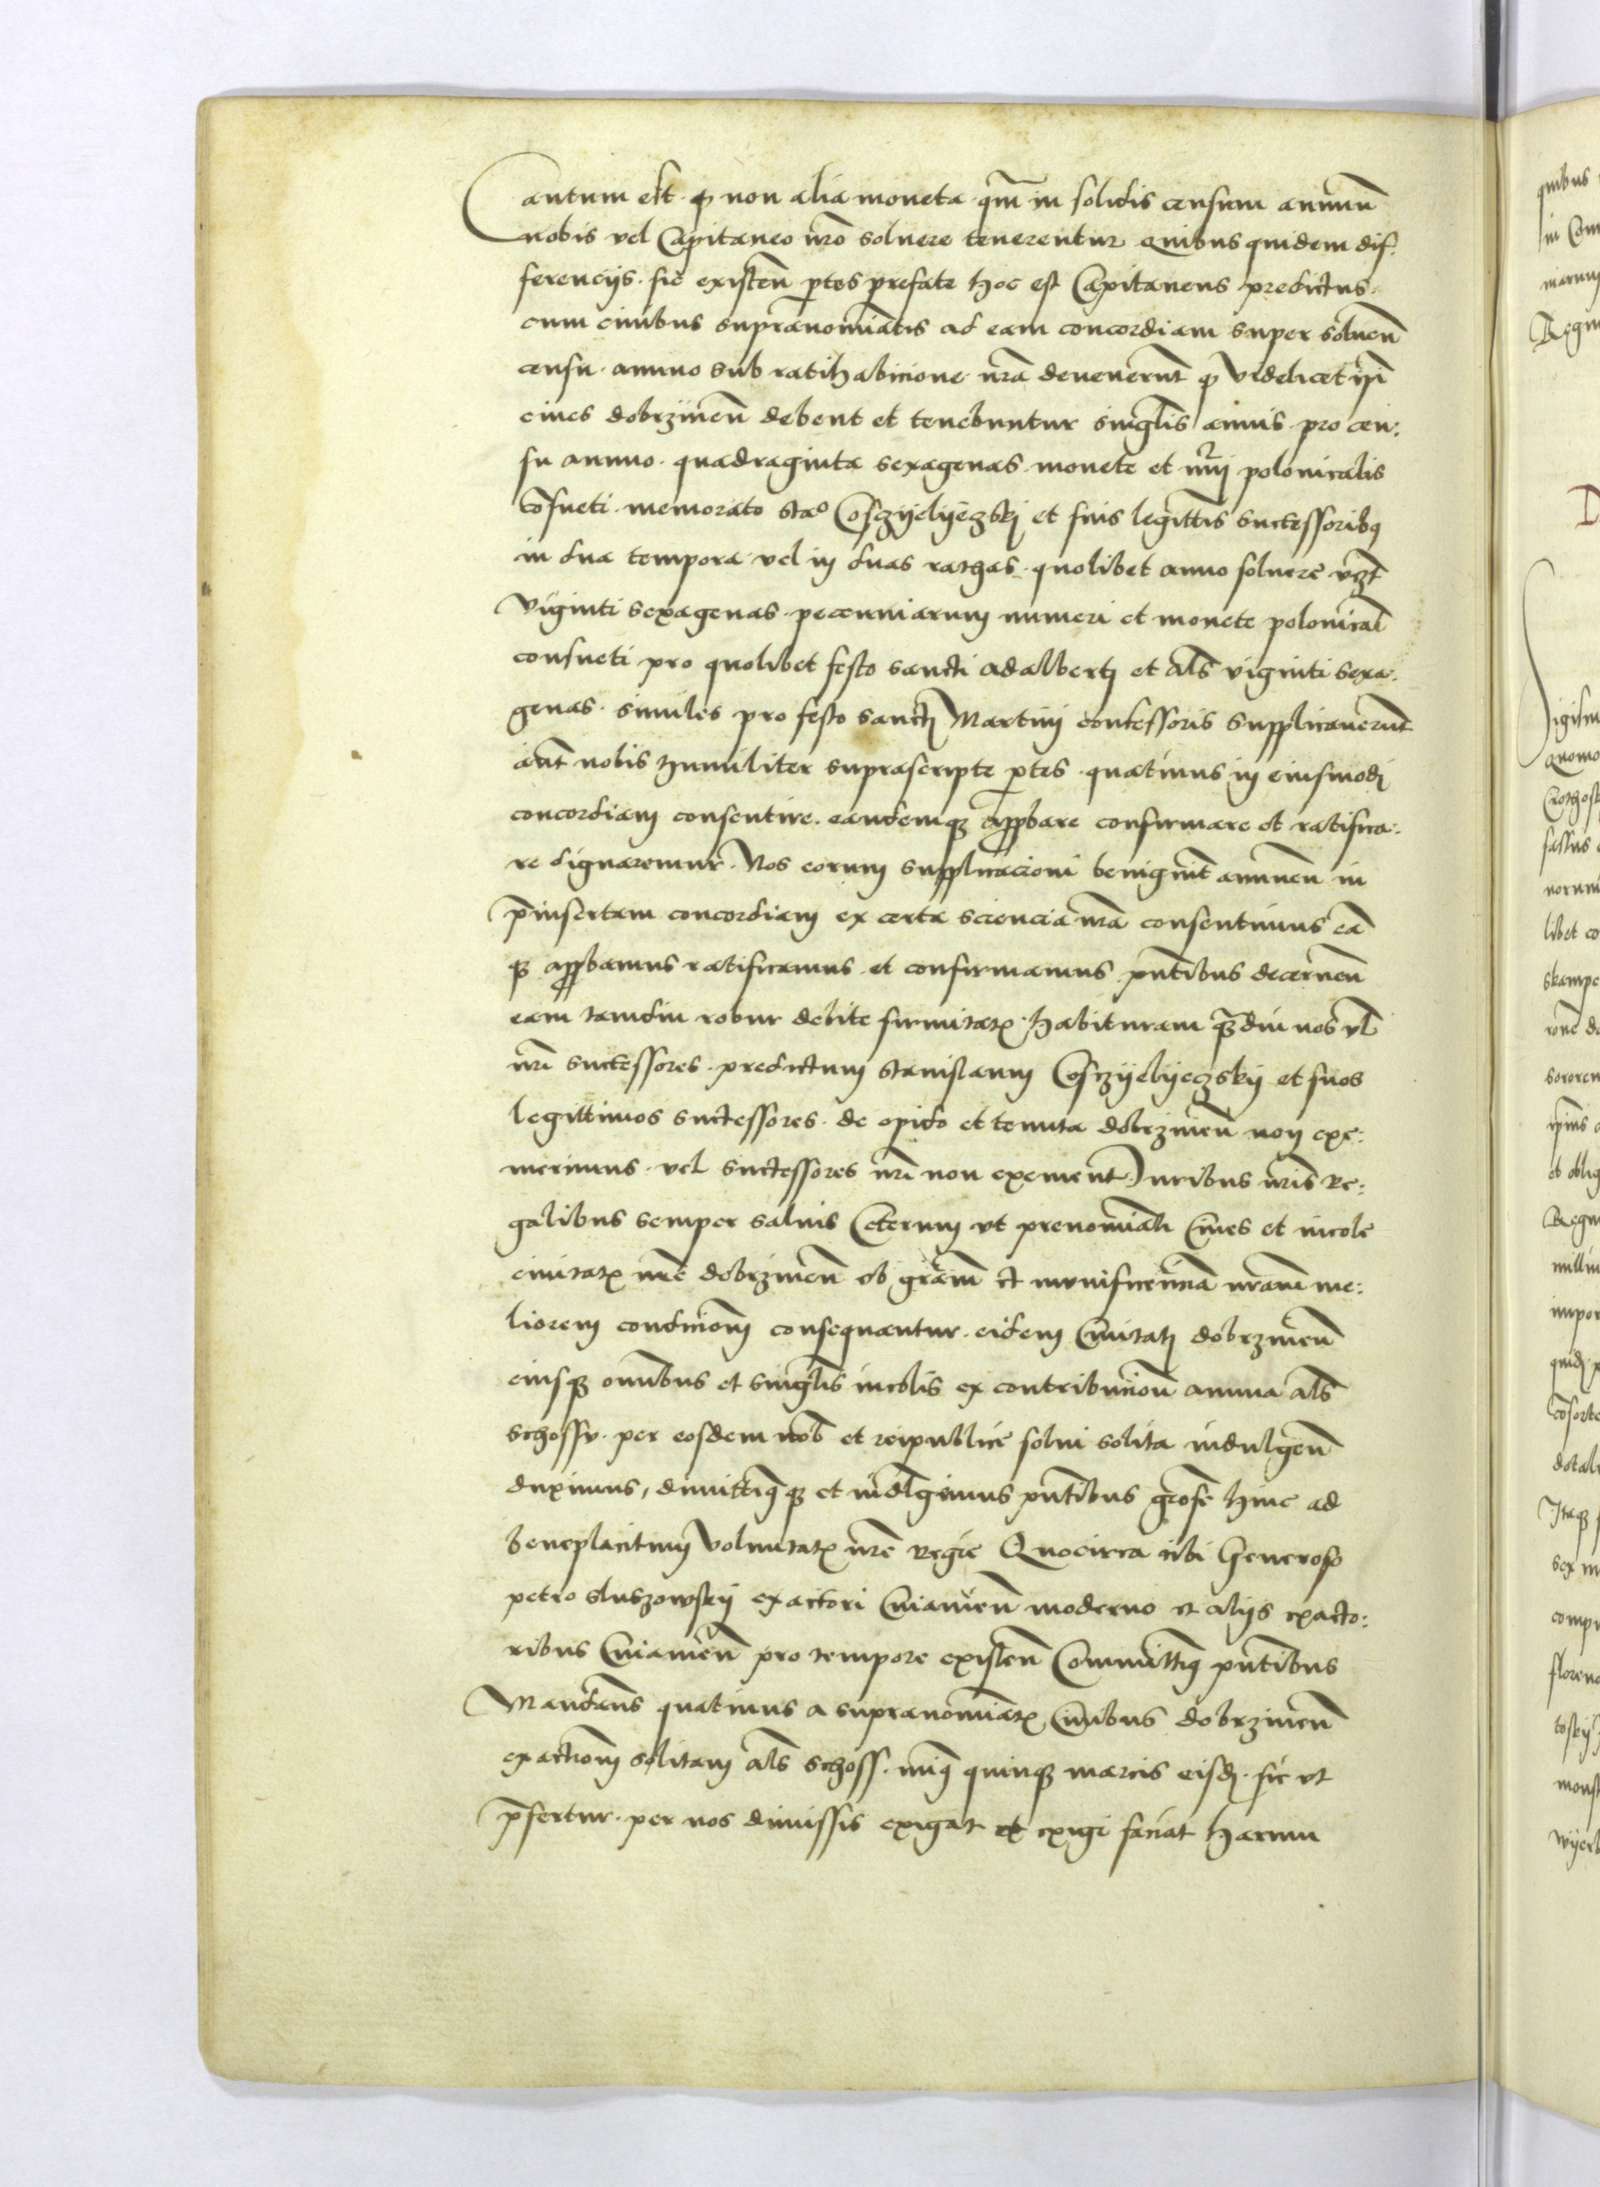 Cautum est. ꝙ non alia moneta. qm̄ in solidis censum annuū
nobis vel Capitaneo nr̄o soluere tenerentur Quibus quidem dif:
ferencijs. sic existeñ ptes prefate hoc est Capitaneus predictus.
cum ciuibus supranominatis ad eam concordiam super soluen̄
censu. annuo sub ratihabicione nr̄a deuenerūt ꝙ videlicet ipī
ciues dobrzineñ debent et tenebuntur singlis annis. pro cen:
su annuo. quadraginta sexagenas. monete et nrī polonicalis
cōsueti. memorato stao Cosczyelyeczskj et suis legittīs successoribꝫ
in dua tempora vel in duas rathas. quolibet anno soluere vꝫt
viginti sexagenas. pecuniarum numeri et monete polonical
consueti pro quolibet festo sancti Adalbertj et als viginti sexa:
genas. similes pro festo sanctj Martini confessoris Supplicauerūt
aut nobis humiliter suprascripte ptes. quatinus in eiusmodj
concordiam consentire. eandemqꝫ appbare confirmare et ratifica:
re dignaremur. Nos eorum supplicacioni benignit annueñ in
pinsertam concordiam ex certa sciencia nr̄a consentimus eā
qꝫ appbamus ratificamus et confirmamus pn̄tibus decerneñ
eam tamdiu robur debite firmitatꝫ habituram qꝫdiu nos vl
nr̄i successores. predictum Stanislaum Cosczyelyeczskij et suos
legittimos successores. de opido et tenuta dobrzineñ non exe:
merimus. vel successores nr̄i non exement Juribus nr̄is Re:
galibus semper saluis Ceterum vt prenominati Ciues et incole
ciuitatꝫ nr̄e dobrzineñ ob grām et munificenciā nr̄am me:
liorem condicionē consequantur. eidem Ciuitatj dobrzineñ
eiusqꝫ omībus et singlis incolis ex contribucione annua als
schossv. per eosdem nob et reipublice solui solita indulgeñ
duximus, dimittimꝫqꝫ et indlgemus pn̄tibus grose hinc ad
beneplacitum voluntatꝫ nr̄e Regie Quocirca tibi Generoso
petro sluszowskij exactori Cuiauieñ moderno et alijs exacto:
ribus Cuiauieñ pro tempore existeñ Committimꝫ pn̄tibus
Mandans quatinus a supranominatꝫ Ciuibus dobrzineñ
exactionē solitam als schoss. quinqꝫ marcis eisdj. sic vt
pfertur. per nos dimissis exigat et exigi faciat harum